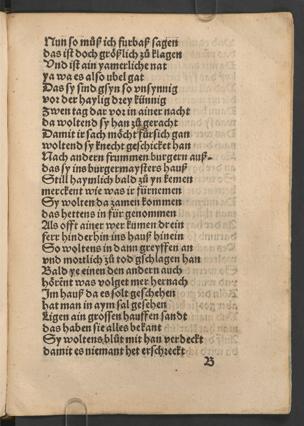 Nun so můß ich furbaß sagen
das ist doch größlich zů klagen
Vnd ist ain yamerliche nat
ya wa es also ubel gat
Das sy sind gsyn so vnsynnig
vor der haylig drey künnig
Zwen tag dar vor in ainer nacht
da woltend sy han zů geracht
Damit ir sach möcht fürsich gan
woltend sy knecht geschicket han
Nach andern frummen burgern auß-
das sy ins burgermaysters hauß
Still haymlich bald zů yn kemen
merckent wie was ir fürnemen
Sy wolten da zamen kommen
das hettens in für genommen
Als offt ainer wer kumen drein
ferr hinder hin ins hauß hinein
So woltens in dann greyffen an
vnd mortlich zů tod gschlagen han
Bald ye einen den andern auch
hörent was volget mer hernach
Im hauß da es solt geschehen
hat man in aym sal gesehen
Ligen ain grossen hauffen sandt
das haben sie alles bekant
Sy woltens blůt mit han verdeckt
damit es niemant het erschreckt
B